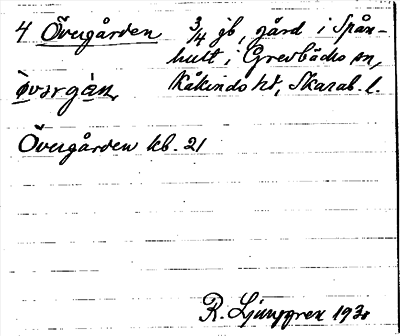 4 Övergården 3/4 gb, gård i Spån-
hult i Grevbäcks sn,
Kåkinds hd, Skarab. l.
òvərgàn,
Övergården kb. 21
R. Ljunggren 1930